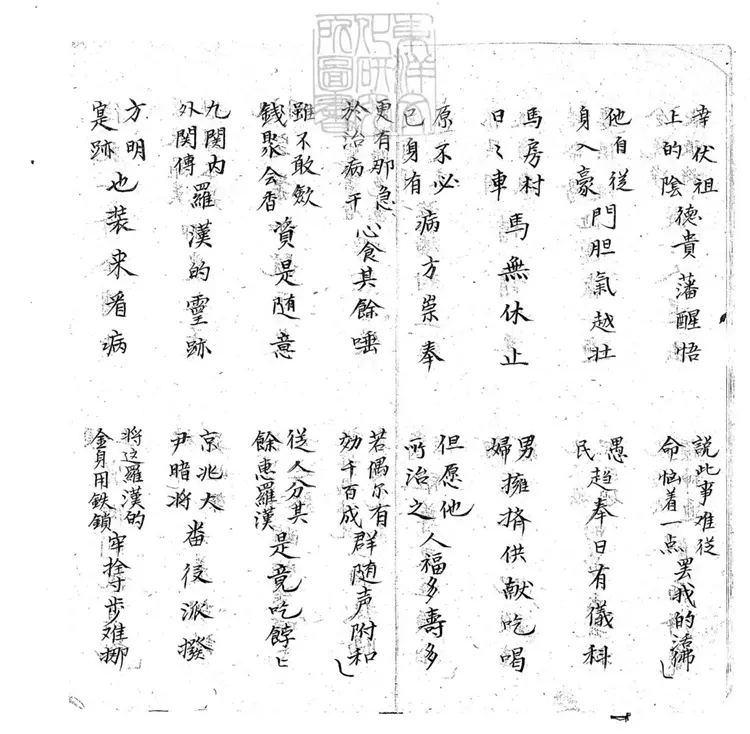 東洋文化研究所圖書
幸伏祖上的陰德貴藩醒悟
說此事难從命惱着一点罢我的活佛
他自從身入豪門胆氣越壮
愚民趋奉日有儀科
馬房村日〻車馬無休止
男婦擁擠供献吃喝
原不必已身有病方崇奉
但愿他所治之人福多壽多
更有那急於治病干心食其餘唾
若偶尔有効千百成群随声附和
雖不敢歛錢聚会香資是随意
從人分其餘惠羅漢是竟吃餑〻
九関内外関傳羅漢的靈跡
京兆大尹暗將畨役派撥
方明寔跡也装来看病
將这羅漢的金身用鉄鎖牢拴寸步难挪